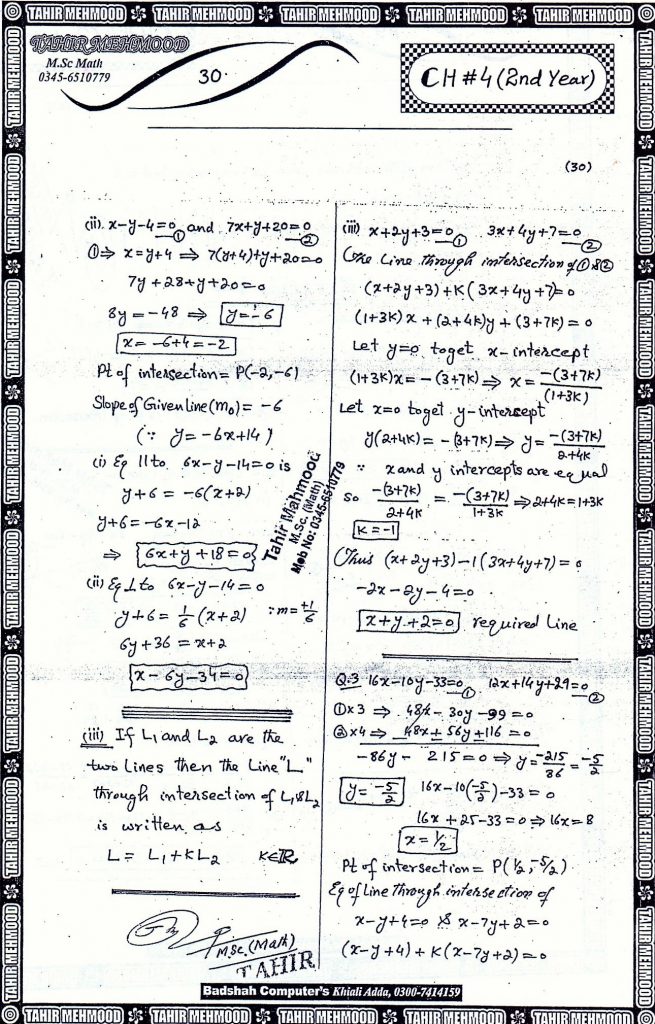 TAHIR MEHMOOD
M.Sc Math
0345-6510779
30.
CH #4 (2nd Year)
(30)
(ii). x-y-4=0 ① and 7x+y+20=0 ②
①⇒ x=y+4 ⇒ 7(y+4)+y+20=0
7y+28+y+20=0
8y=-48 ⇒ y=-6
x=-6+4=-2
Pt of intersection = P(-2,-6)
Slope of Given line (m₀) = -6
(∵ y=-6x+14)
(i) Eq 11 to 6x-y-14=0 is
y+6 = -6(x+2)
y+6=-6x-12
⇒ 6x+y+18=0
(ii) Eq ⊥ to 6x-y-14=0
y+6 = 1/6 (x+2) ∵m=+1/6
6y+36 = x+2
x-6y-34=0
(iii) If L1 and L2 are the
two lines then the Line "L"
through intersection of L1&L2
is written as
L = L1+KL2 K∈R,
MSc.(Math)
TAHIR
Tahir Mahmood
M.Sc. (Math)
Mob No: 0345-6510779
(iii) x+2y+3=0 ① 3x+4y+7=0 ②
The Line through intersection of ① & ②
(x+2y+3)+K(3x+4y+7)=0
(1+3K)x+(2+4K)y+(3+7K)=0
Let y=0 to get x-intercept
(1+3K)x=-(3+7K) ⇒ x= -(3+7K)/(1+3K)
Let x=0 to get y-intersept
y(2+4K)=-(3+7K) ⇒ y= -(3+7K)/2+4K
∵ x and y intercepts are equal
so -(3+7K)/2+4K = -(3+7K)/1+3K ⇒ 2+4K=1+3K
K=-1
Thus (x+2y+3)-1(3x+4y+7)=0
-2x-2y-4=0
x+y+2=0 required Line
Q.3 16x-10y-33=0 ① 12x+14y+29=0 ②
①x3 ⇒ 48x-30y-99=0
②x4 ⇒ 48x±56y±116=0
-86y-215=0 ⇒ y= -215/86 = -5/2
y=-5/2 16x-10(-5/2)-33=0
16x+25-33=0 ⇒ 16x=8
x=1/2
Pt of intersection = P(1/2,-5/2)
Eq of Line through intersection of
x-y+4=0 & x-7y+2=0
(x-y+4)+K(x-7y+2)=0
Badshah Computer's Khiali Adda, 0300-7414159